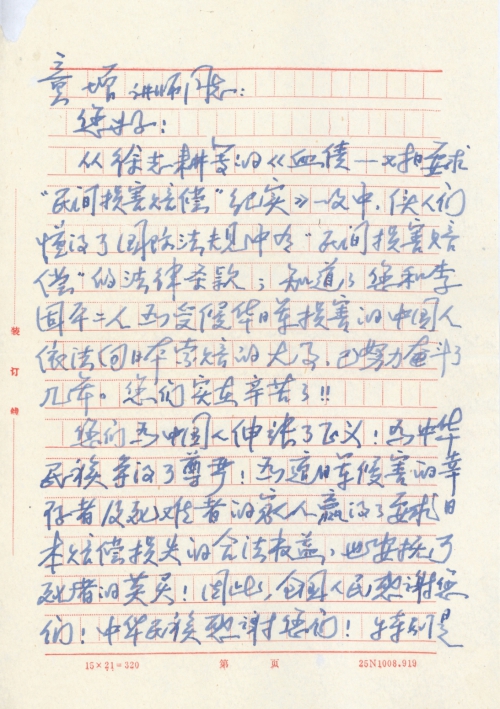 童增讲师同志:
您好!
从徐志耕写的《血债——对日要求
"民间损害赔偿"纪实》一文中,使人们
懂得了国际法规中有"民间损害赔
偿"的法律条款;知道了您和李
固平二人为受侵华日军损害的中国人
依法向日本索赔的大事,已努力奋斗了
几年。您们实在辛苦了!!
您们为中国人伸张了正义!为中华
民族争得了尊严!为遭日军侵害的幸
存者及死难者的家人赢得了要求日
本赔偿损失的合法权益,也安抚了
死者的英灵!因此,全国人民感谢您
们!中华民族感谢您们!特别是
装
订
线
15×21=320 第 页 26N1008.919